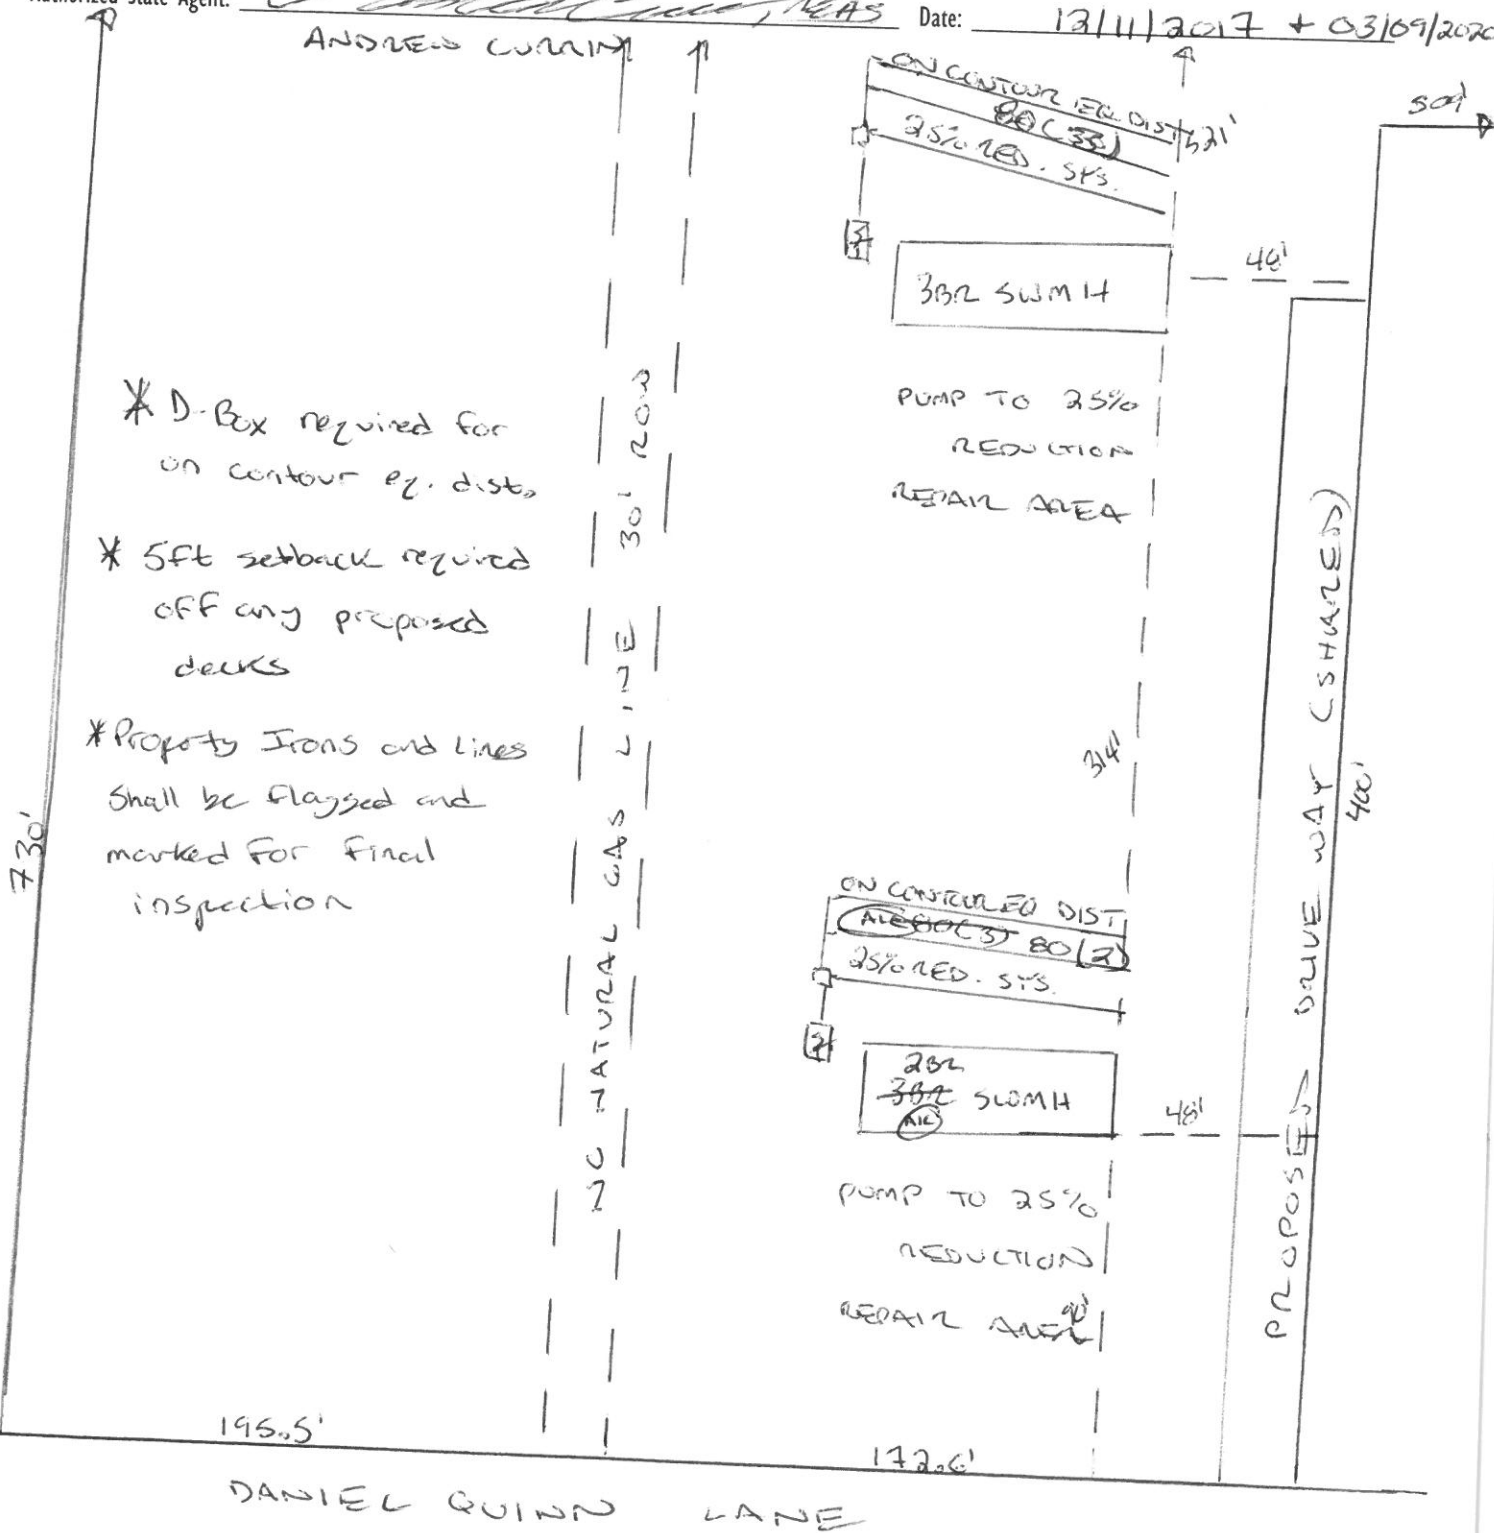 Authorized State Agent:
, REAS Date: 12/11/2017 + 03/09/2020
ANDREW CURRIN
ON CONTOUR EQ. DIST
80(3)
25% RED. SYS.
521'
509'
48'
3BR SWMH
PUMP TO 25%
REDUCTION
REPAIR AREA
* D-Box required for
on contour eq. dist.
* 5ft setback required
off any proposed
decks
* Property Irons and Lines
Shall be flagged and
marked for final
inspection
730'
NC NATURAL GAS LINE 30' ROW
314'
PROPOSED DRIVE WAY (SHARED)
400'
ON CONTOUR EQ DIST
80(3) 80(2)
25% RED. SYS.
2BR
3BR SWMH
48'
PUMP TO 25%
REDUCTION
REPAIR AREA
90'
195.5'
172.6'
DANIEL QUINN LANE